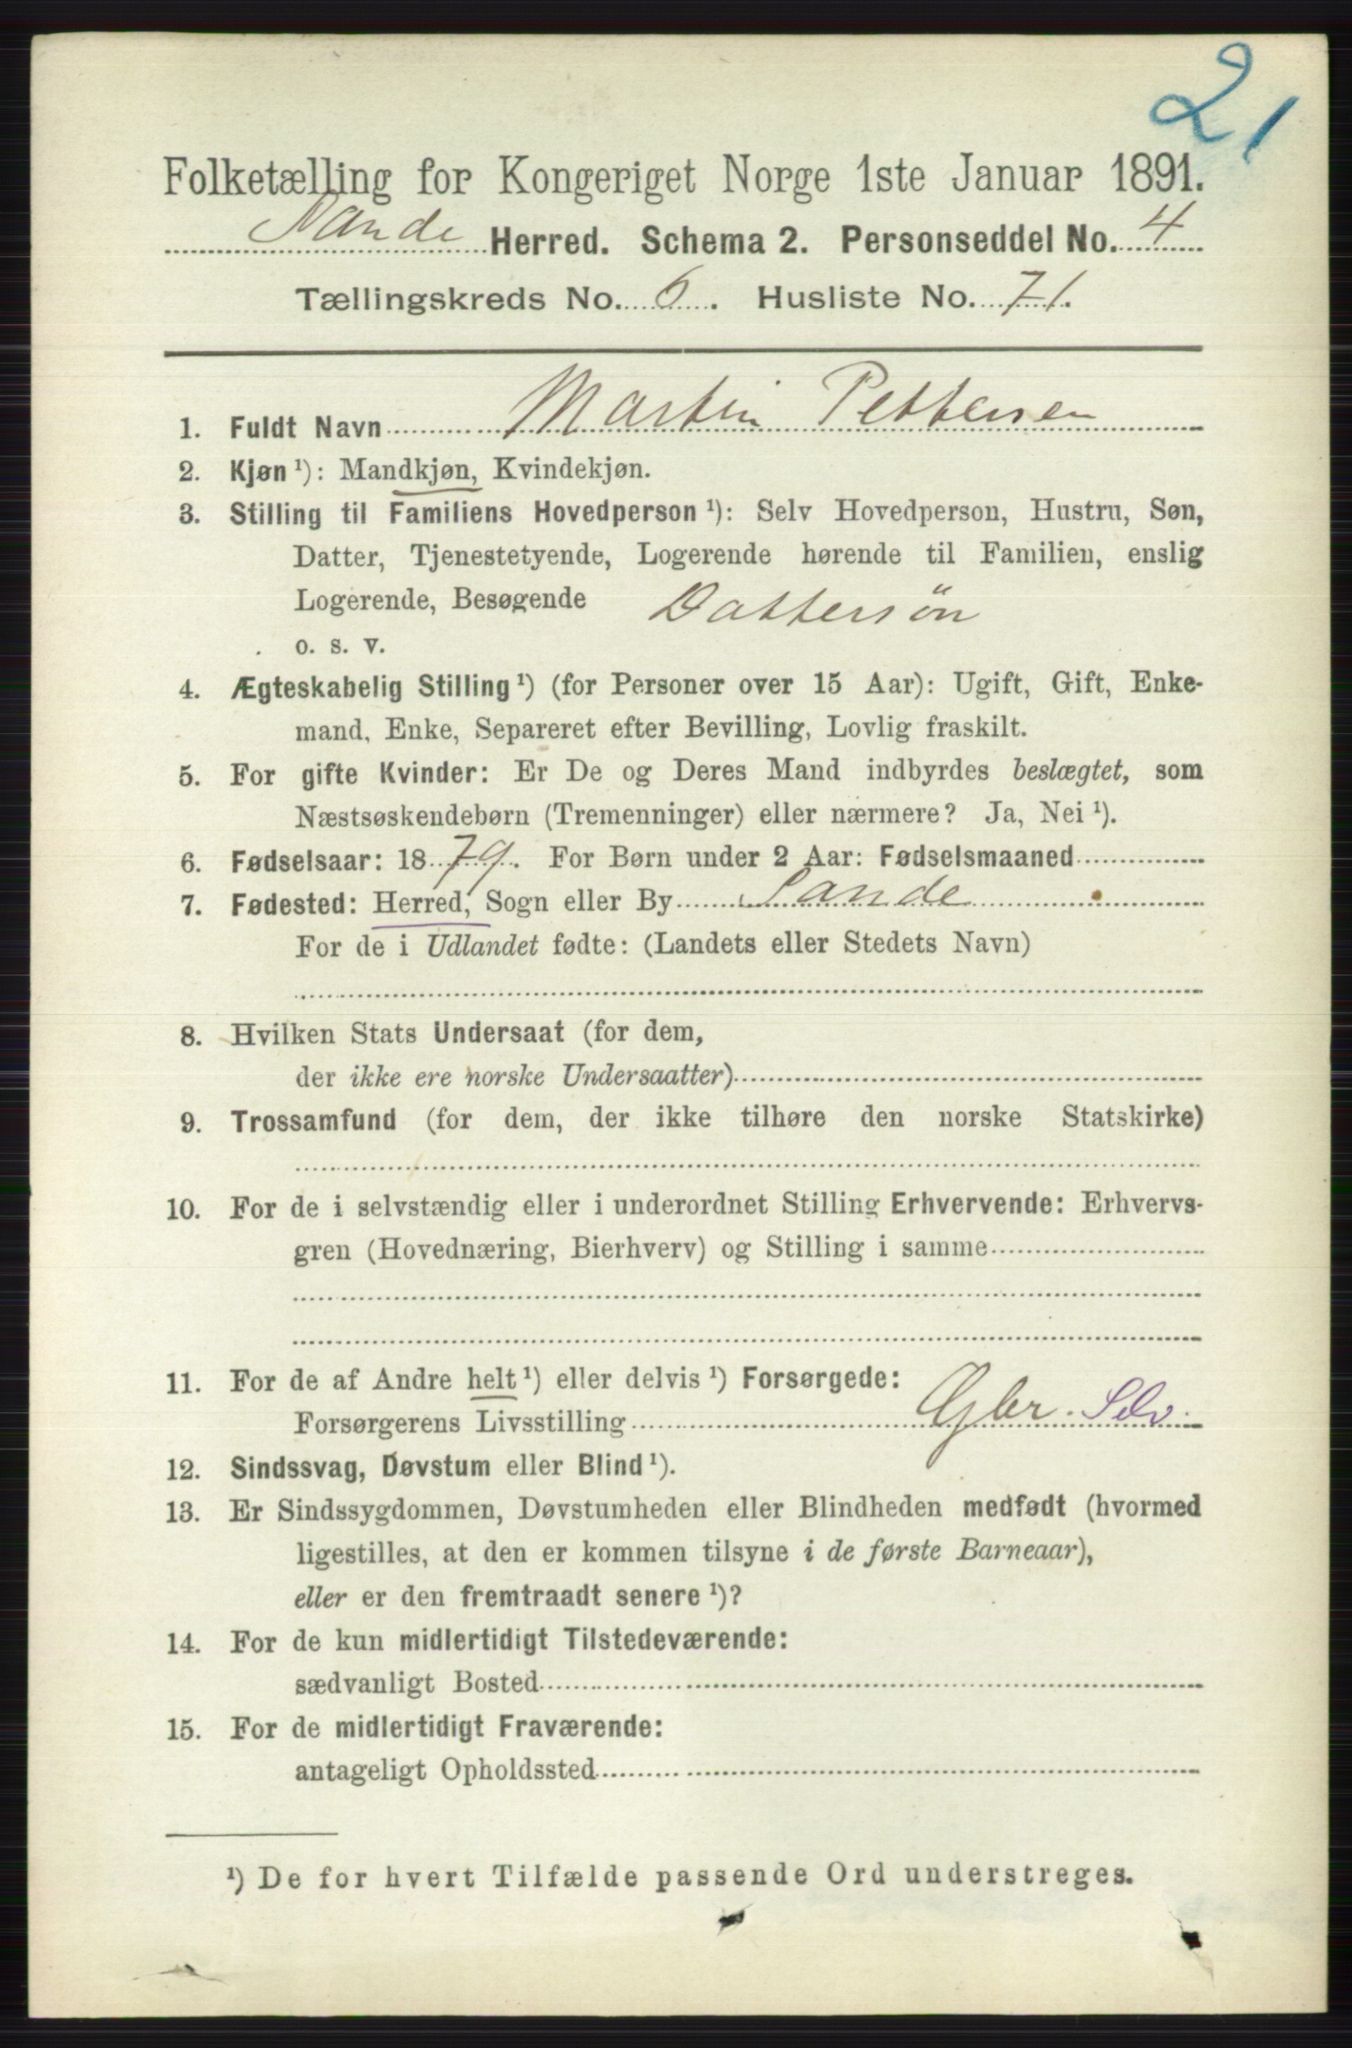 21
Folketælling for Kongeriget Norge 1ste Januar 1891.
Sande Herred. Schema 2. Personseddel No. 4
Tællingskreds No. 6. Husliste No. 71.
1. Fuldt Navn Martin Pettersen
2. Kjøn ¹): Mandkjøn, Kvindekjøn.
3. Stilling til Familiens Hovedperson ¹): Selv Hovedperson, Hustru, Søn,
Datter, Tjenestetyende, Logerende hørende til Familien, enslig
Logerende, Besøgende Dattersøn
o. s. v.
4. Ægteskabelig Stilling ¹) (for Personer over 15 Aar): Ugift, Gift, Enke-
mand, Enke, Separeret efter Bevilling, Lovlig fraskilt.
5. For gifte Kvinder: Er De og Deres Mand indbyrdes beslægtet, som
Næstsøskendebørn (Tremenninger) eller nærmere? Ja, Nei ¹).
6. Fødselsaar: 1879. For Børn under 2 Aar: Fødselsmaaned
7. Fødested: Herred, Sogn eller By Sande
For de i Udlandet fødte: (Landets eller Stedets Navn)
8. Hvilken Stats Undersaat (for dem,
der ikke ere norske Undersaatter)
9. Trossamfund (for dem, der ikke tilhøre den norske Statskirke)
10. For de i selvstændig eller i underordnet Stilling Erhvervende: Erhvervs-
gren (Hovednæring, Bierhverv) og Stilling i samme
11. For de af Andre helt ¹) eller delvis ¹) Forsørgede:
Forsørgerens Livsstilling Gbr. Selv.
12. Sindssvag, Døvstum eller Blind ¹).
13. Er Sindssygdommen, Døvstumheden eller Blindheden medfødt (hvormed
ligestilles, at den er kommen tilsyne i de første Barneaar),
eller er den fremtraadt senere ¹)?
14. For de kun midlertidigt Tilstedeværende:
sædvanligt Bosted
15. For de midlertidigt Fraværende:
antageligt Opholdssted
¹) De for hvert Tilfælde passende Ord understreges.